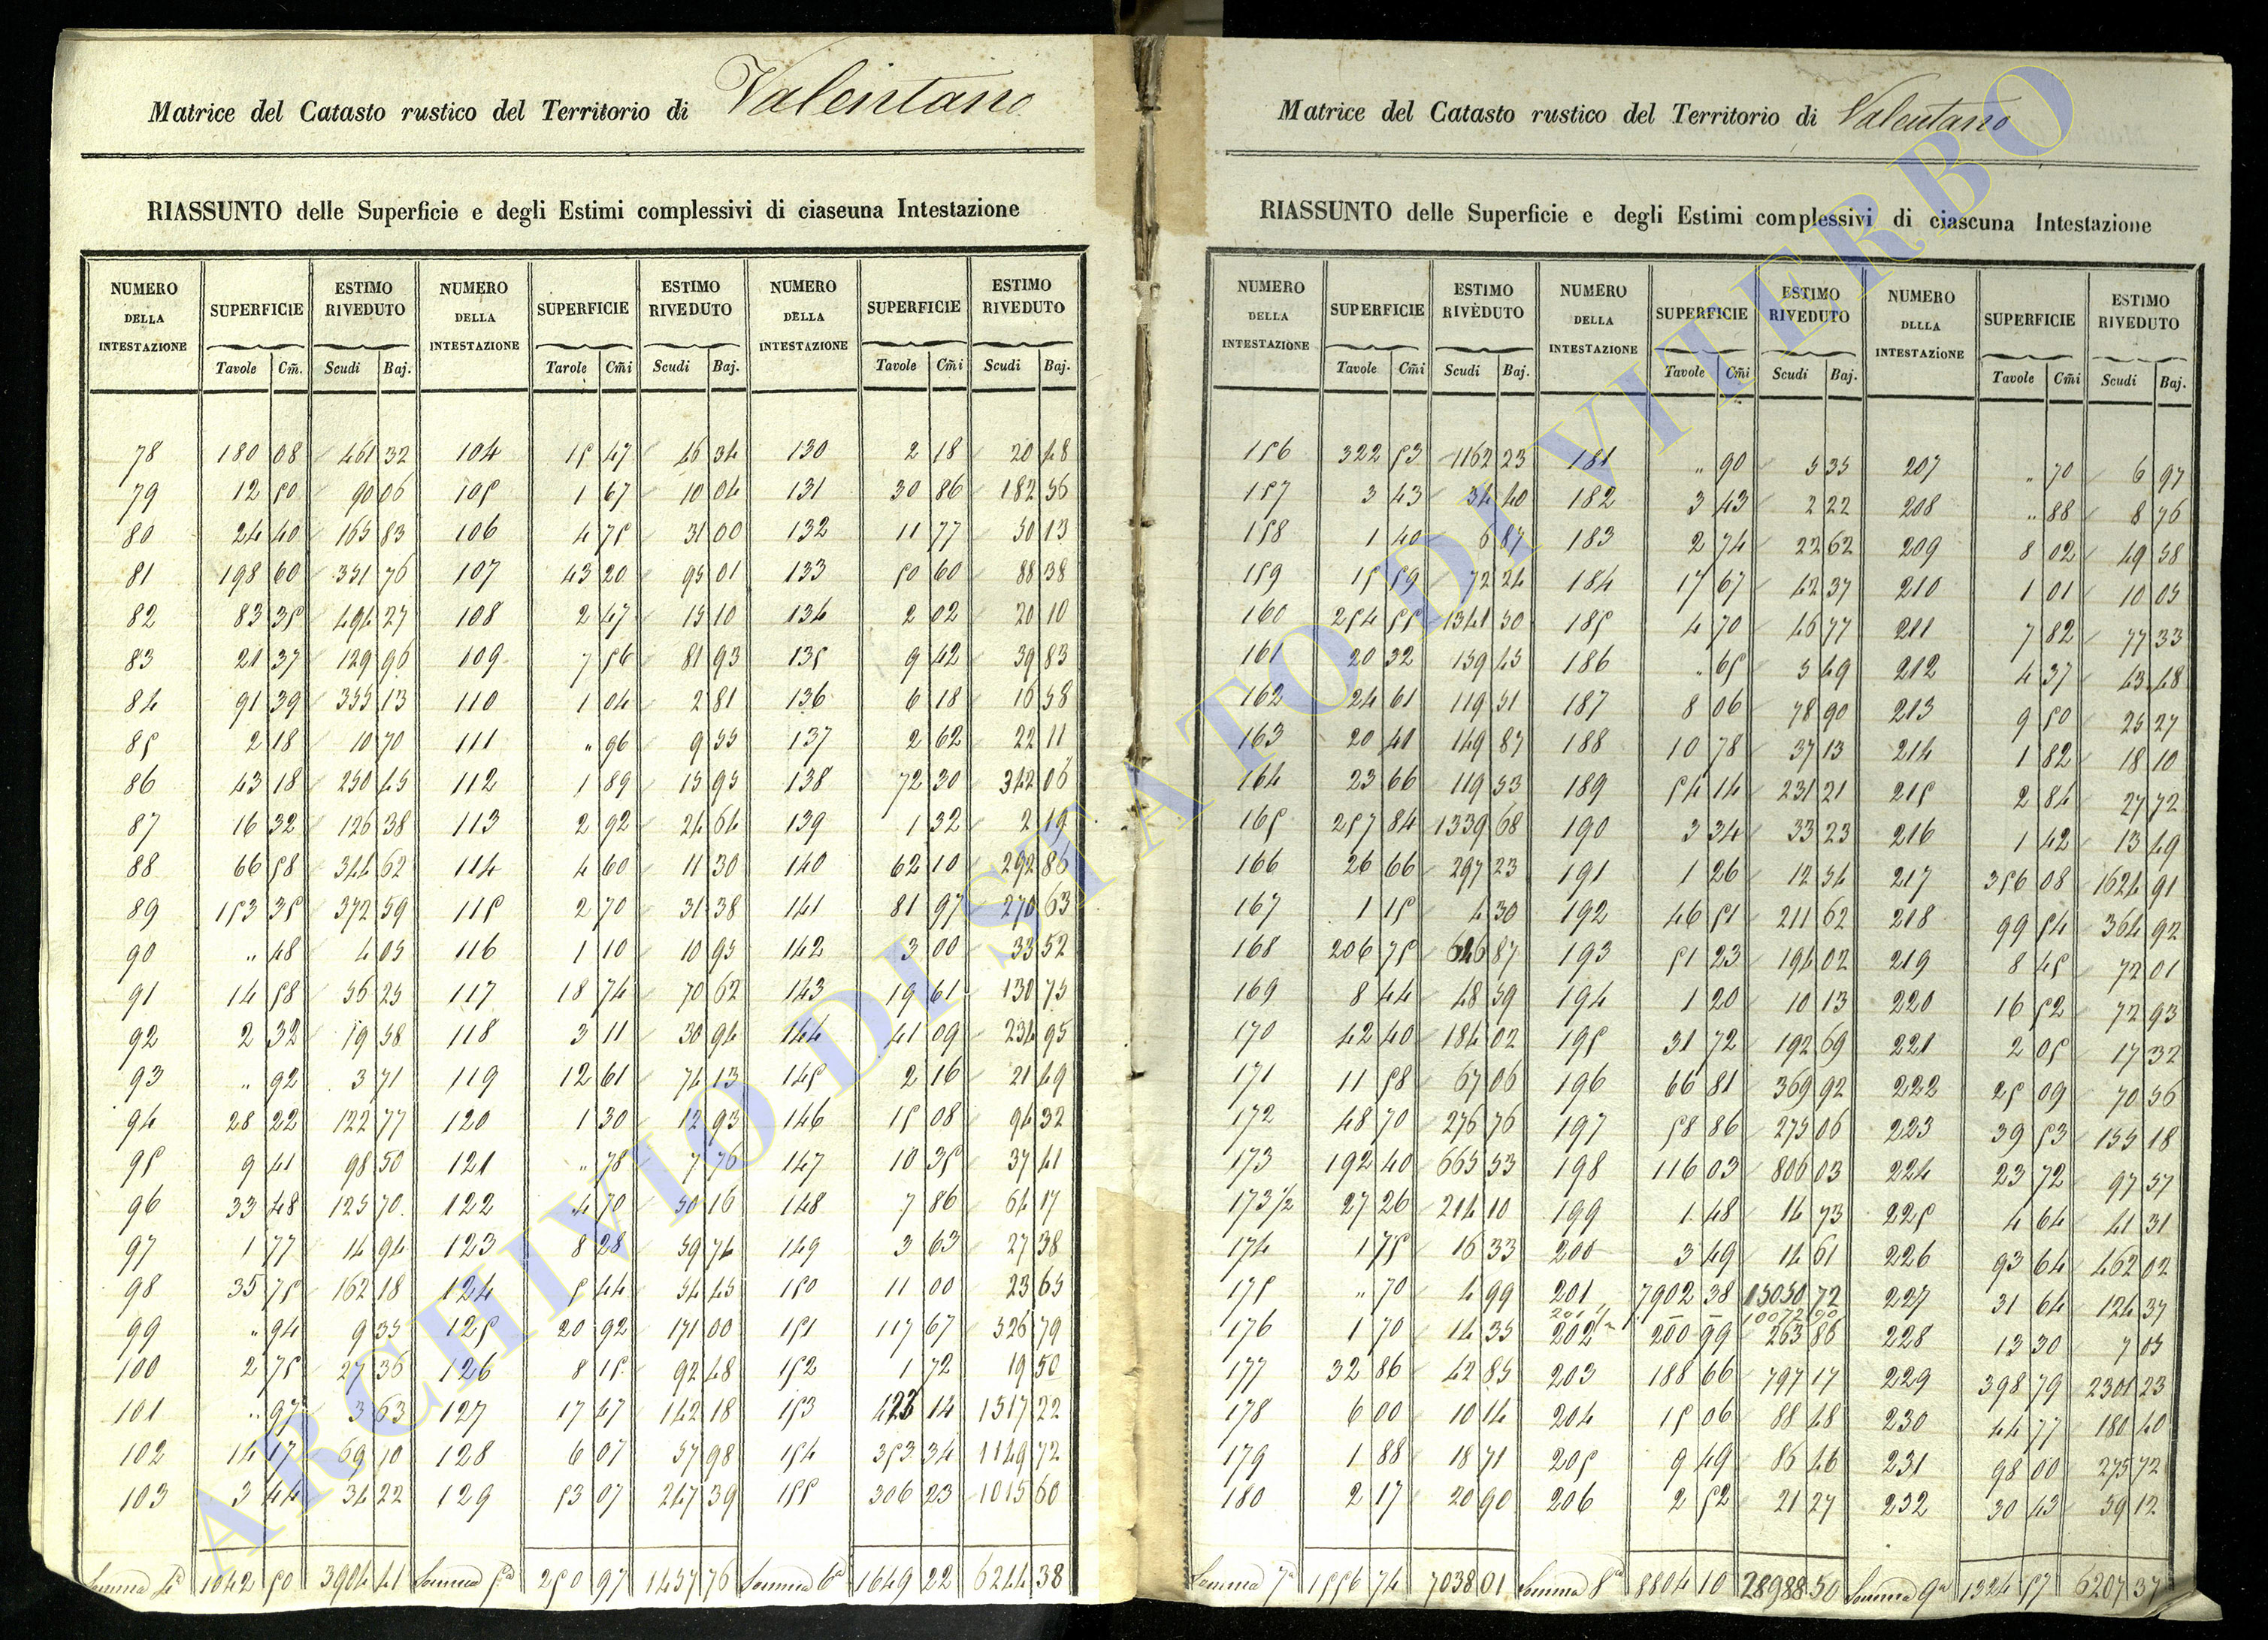 Matrice del Catasto rustico del Territorio di Valentano
RIASSUNTO delle Superficie e degli Estimi complessivi di ciaseuna Intestazione
NUMERO DELLA INTESTAZIONE SUPERFICIE ESTIMO RIVEDUTO NUMERO DELLA INTESTAZIONE SUPERFICIE ESTIMO RIVEDUTO NUMERO DELLA INTESTAZIONE SUPERFICIE ESTIMO RIVEDUTO
Tavole Cm̃. Scudi Baj. Tavole Cm̃i Scudi Baj. Tavole Cm̃i Scudi Baj.
78 180 08 461 32 104 15 47 46 34 130 2 18 20 48
79 12 50 90 06 105 1 67 10 04 131 30 86 182 56
80 24 40 165 83 106 4 75 31 00 132 11 77 50 13
81 198 60 351 76 107 43 20 95 01 133 50 60 88 38
82 83 35 494 27 108 2 47 15 10 134 2 02 20 10
83 21 37 129 96 109 7 56 81 93 135 9 42 39 83
84 91 39 355 13 110 1 04 2 81 136 6 18 16 58
85 2 18 10 70 111 " 96 9 55 137 2 62 22 11
86 43 18 250 45 112 1 89 15 95 138 72 30 342 06
87 16 32 126 38 113 2 92 24 64 139 1 32 2 19
88 66 58 344 62 114 4 60 11 30 140 62 10 292 86
89 153 35 372 59 115 2 70 31 38 141 81 97 270 63
90 " 48 4 05 116 1 10 10 95 142 3 00 33 52
91 14 58 56 25 117 18 74 70 62 143 19 61 130 75
92 2 32 19 58 118 3 11 30 94 144 41 09 234 95
93 " 92 3 71 119 12 61 74 13 145 2 16 21 49
94 28 22 122 77 120 1 30 12 93 146 15 08 94 32
95 9 41 98 50 121 " 78 7 76 147 10 35 37 41
96 33 48 125 70 122 4 70 50 16 148 7 86 64 17
97 1 77 14 94 123 8 28 59 74 149 3 63 27 38
98 35 75 162 18 124 5 44 54 45 150 11 00 23 65
99 " 94 9 35 125 20 92 171 00 151 117 67 526 79
100 2 75 27 36 126 8 15 92 48 152 1 72 19 50
101 " 97 3 63 127 17 47 142 18 153 423 14 1517 22
102 14 17 69 10 128 6 07 57 98 154 353 34 1149 72
103 3 44 34 22 129 53 07 247 39 155 306 23 1015 60
Somma 4a 1042 50 3904 41 Somma 5a 250 97 1457 76 Somma 6a 1649 22 6244 38
Matrice del Catasto rustico del Territorio di Valentano
RIASSUNTO delle Superficie e degli Estimi complessivi di ciascuna Intestazione
NUMERO DELLA INTESTAZIONE SUPERFICIE ESTIMO RIVEDUTO NUMERO DELLA INTESTAZIONE SUPERFICIE ESTIMO RIVEDUTO NUMERO DELLA INTESTAZIONE SUPERFICIE ESTIMO RIVEDUTO
Tavole Cm̃i Scudi Baj. Tavole Cm̃i Scudi Baj. Tavole Cm̃i Scudi Baj.
156 322 53 1162 23 181 " 90 5 35 207 " 70 6 97
157 3 43 34 40 182 3 43 2 22 208 " 88 8 76
158 1 40 6 87 183 2 74 22 62 209 8 02 49 58
159 15 59 72 24 184 17 67 42 37 210 1 01 10 05
160 254 55 1341 50 185 4 70 46 77 211 7 82 77 33
161 20 32 159 45 186 " 65 5 49 212 4 37 43 48
162 24 61 119 51 187 8 06 78 90 213 9 50 25 27
163 20 41 149 87 188 10 78 37 13 214 1 82 18 10
164 23 66 119 53 189 54 14 231 21 215 2 84 27 72
165 257 84 1339 68 190 3 34 33 23 216 1 42 13 49
166 26 66 297 23 191 1 26 12 54 217 356 08 1624 91
167 1 15 4 30 192 46 51 211 62 218 99 54 364 92
168 206 75 87 193 51 23 194 02 219 8 45 72 01
169 8 44 48 59 194 1 20 10 13 220 16 52 72 93
170 42 40 184 02 195 31 72 192 69 221 2 05 17 32
171 11 58 67 06 196 66 81 369 92 222 25 09 70 56
172 48 70 276 76 197 58 86 275 06 223 39 53 155 18
173 192 40 665 53 198 116 03 806 03 224 23 72 97 57
173½ 27 26 214 10 199 1 48 14 73 225 4 64 41 31
174 1 75 16 33 200 3 49 14 61 226 93 64 462 02
175 " 70 4 99 201 7902 38 15050 72 227 31 64 124 37
201 ½ — — 10072 00
176 1 70 14 35 202 200 99 263 86 228 13 30 7 05
177 32 86 42 85 203 188 66 797 17 229 398 79 2301 23
178 6 00 10 14 204 15 06 88 48 230 44 77 180 40
179 1 88 18 71 205 9 49 86 46 231 98 00 275 72
180 2 17 20 90 206 2 52 21 27 232 30 43 59 12
Somma 7a 1556 74 7038 01 Somma 8a 8804 10 28988 50 Somma 9a 1324 57 6207 37
ARCHIVIO DI STATO DI VITERBO